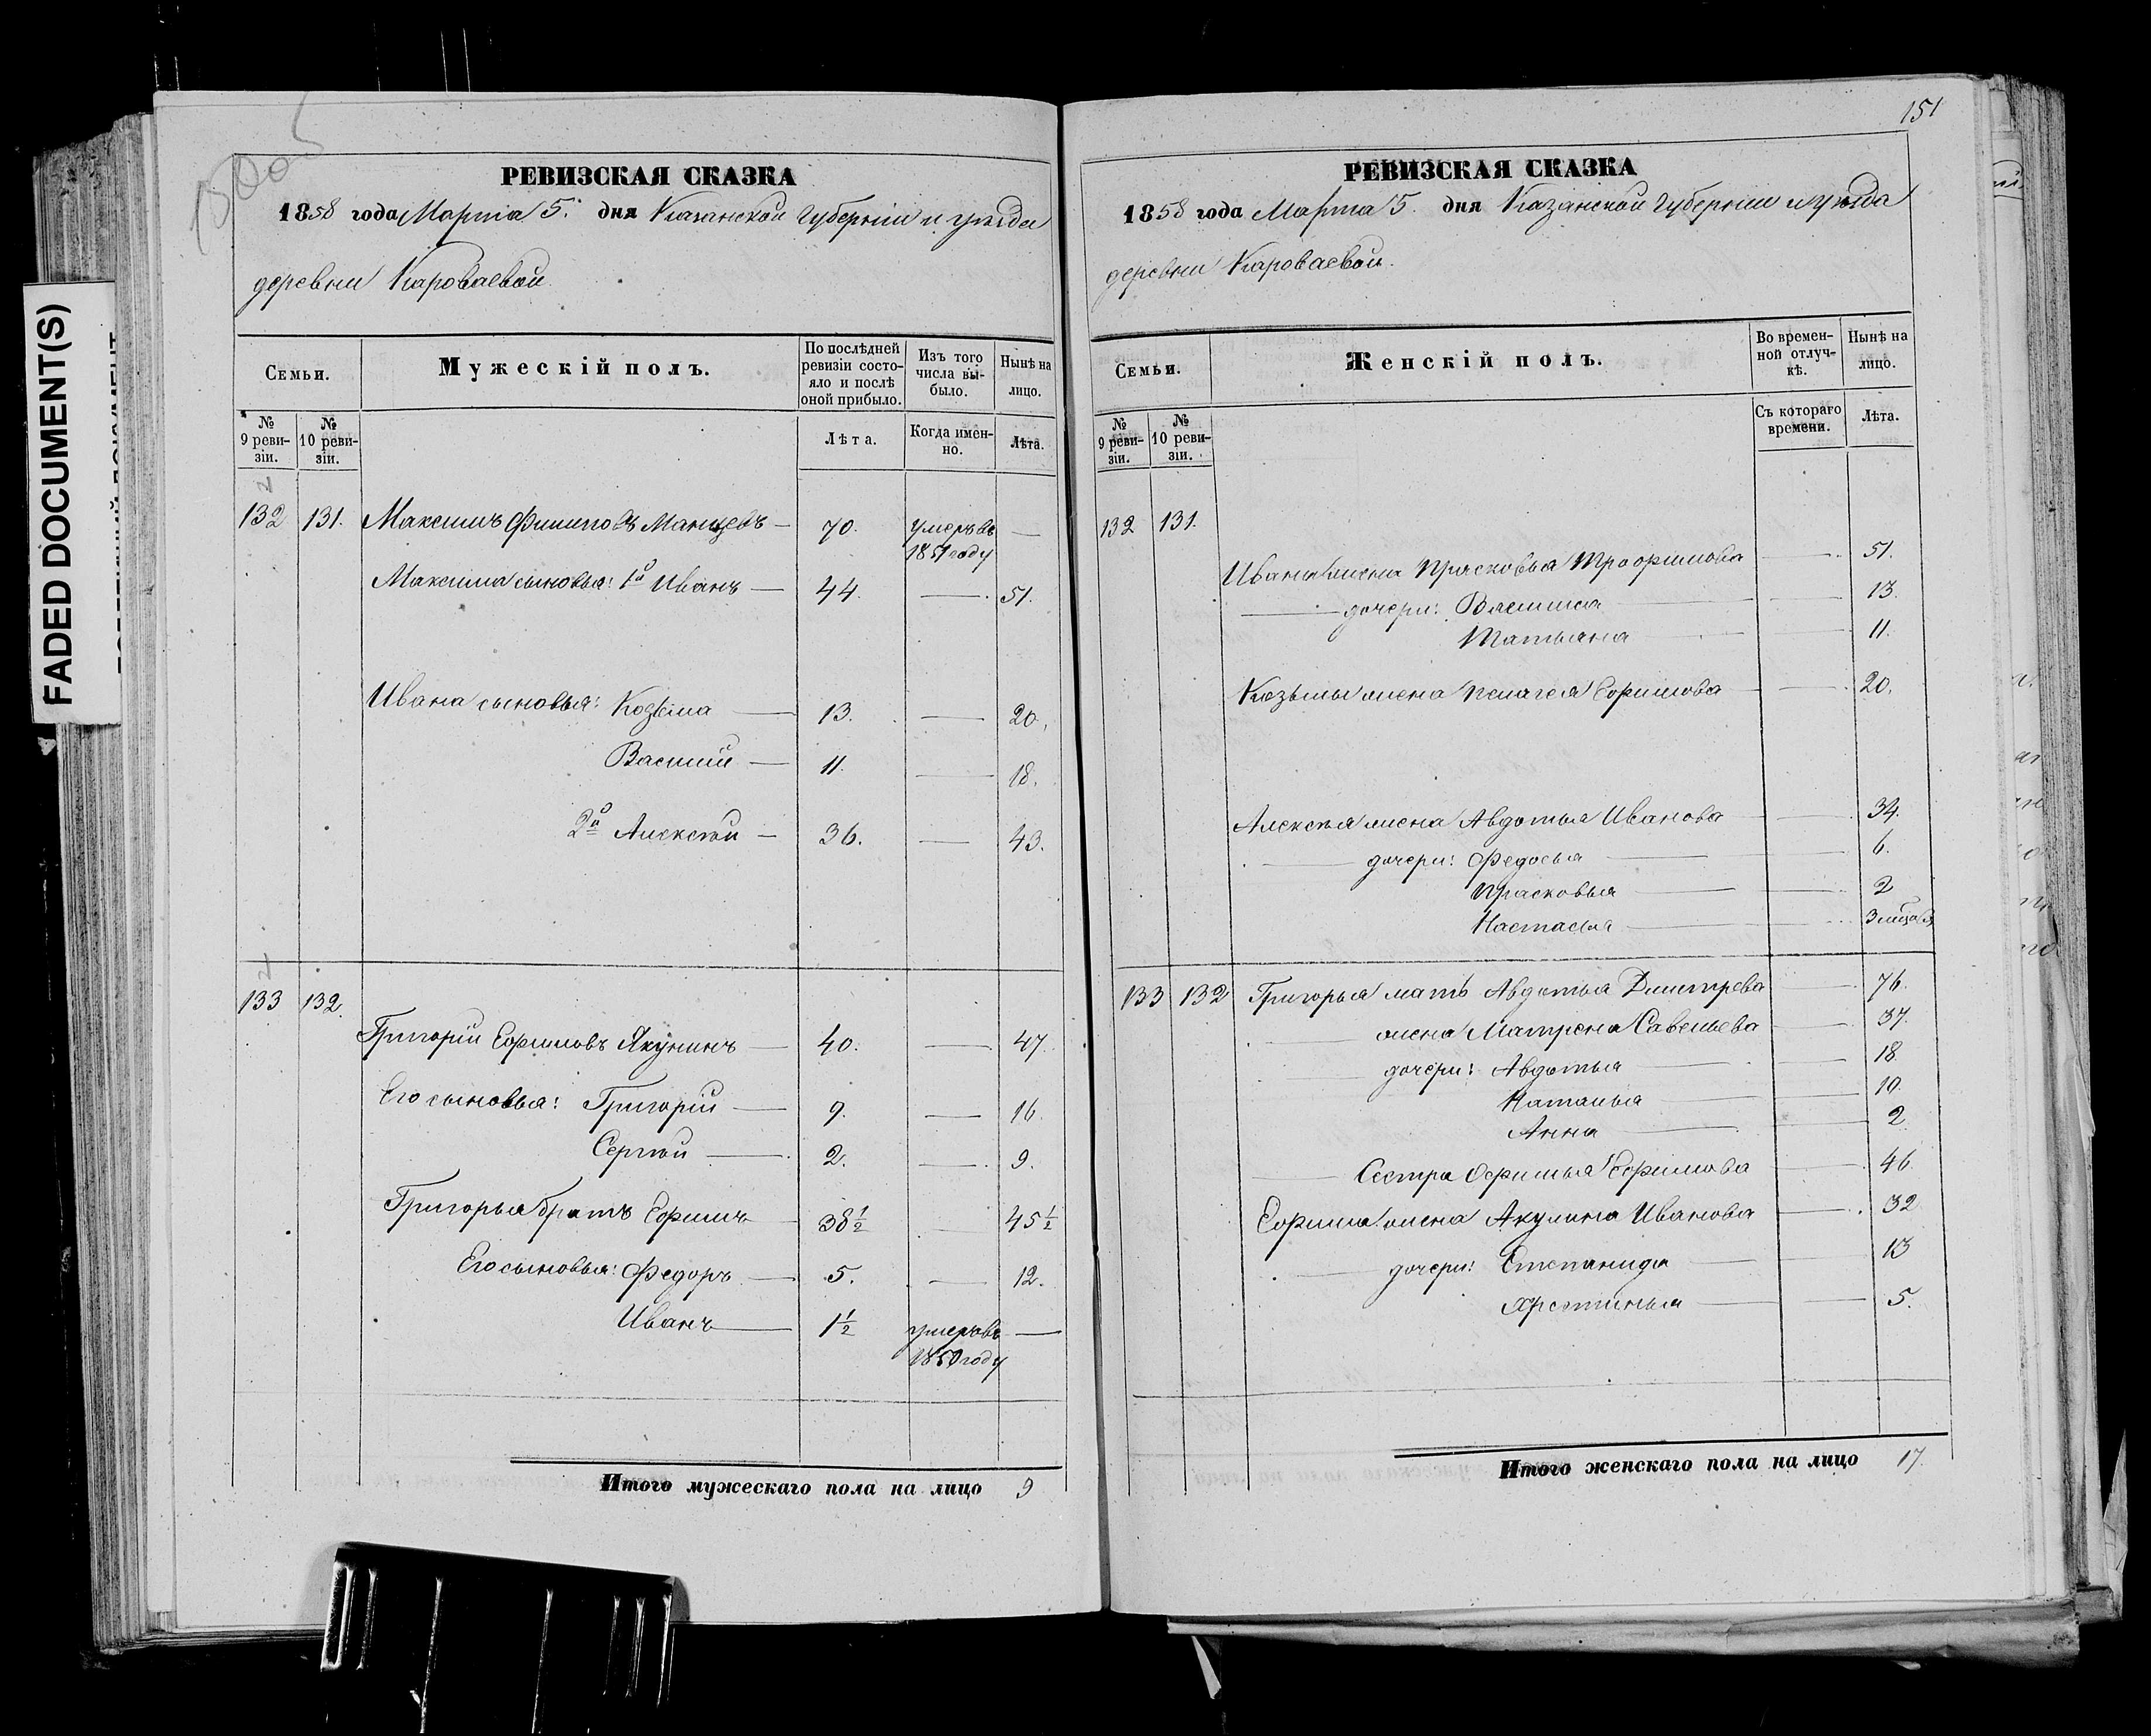 FADED DOCUMENT(S)
РЕВИЗСКАЯ СКАЗКА
1858 года Марта 5. дня Казанской Губерніи и уѣзда
деревни Кароваевой.
Семьи.
Мужескій полъ.
По послѣдней ревизіи состояло и послѣ оной прибыло.
Изъ того числа выбыло.
Нынѣ на лицо.
№ 9 ревизіи.
№ 10 ревизіи.
Лѣта.
Когда именно.
Лѣта.
132 131. Максимъ Филиповъ — 70. умеръ въ —
1851 году
Максима сыновья: 1й Иванъ — 44. — 51.
Ивана сыновья: Козьма — 13. — 20.
Василій — 11. — 18.
2й Алексѣй — 36. — 43.
133 132.
Григорій Ефимовъ Якунинъ — 40. — 47.
Его сыновья: Григорій — 9. — 16.
Сергѣй — 2. — 9.
Григорья братъ Ефимъ — 38 1/2 — 45 1/2
Его сыновья: Федоръ — 5. — 12.
Иванъ — 1 1/2 умеръ въ —
1850 году
Итого мужескаго пола на лицо 9
151
РЕВИЗСКАЯ СКАЗКА
1858 года Марта 5. дня Казанской Губерніи и уѣзда
деревни Кароваевой.
Семьи.
Женскій полъ.
Во временной отлучкѣ.
Нынѣ на лицо.
№ 9 ревизіи.
№ 10 ревизіи.
Съ котораго времени.
Лѣта.
132 131.
Ивана жена Прасковья Трофимова — 51.
— дочери: Василиса — 13.
Татьяна — 11.
Козьмы жена Пелагея Ефимова — 20.
Алексѣя жена Авдотья Иванова — 34.
— дочери: Федосья — 6.
Прасковья — 2
Настасья — 3 мѣся
133 132 Григорья мать Авдотья Дмитрева — 76.
жена Матрена Савельева — 37.
— дочери: Авдотья — 18
Наталья — 10.
Анна — 2
— Сестра Офимья Ефимова — 46.
Ефима жена Акулина Иванова — 32
— дочери: Степанида — 13
Хрестинья — 5.
Итого женскаго пола на лицо 17.